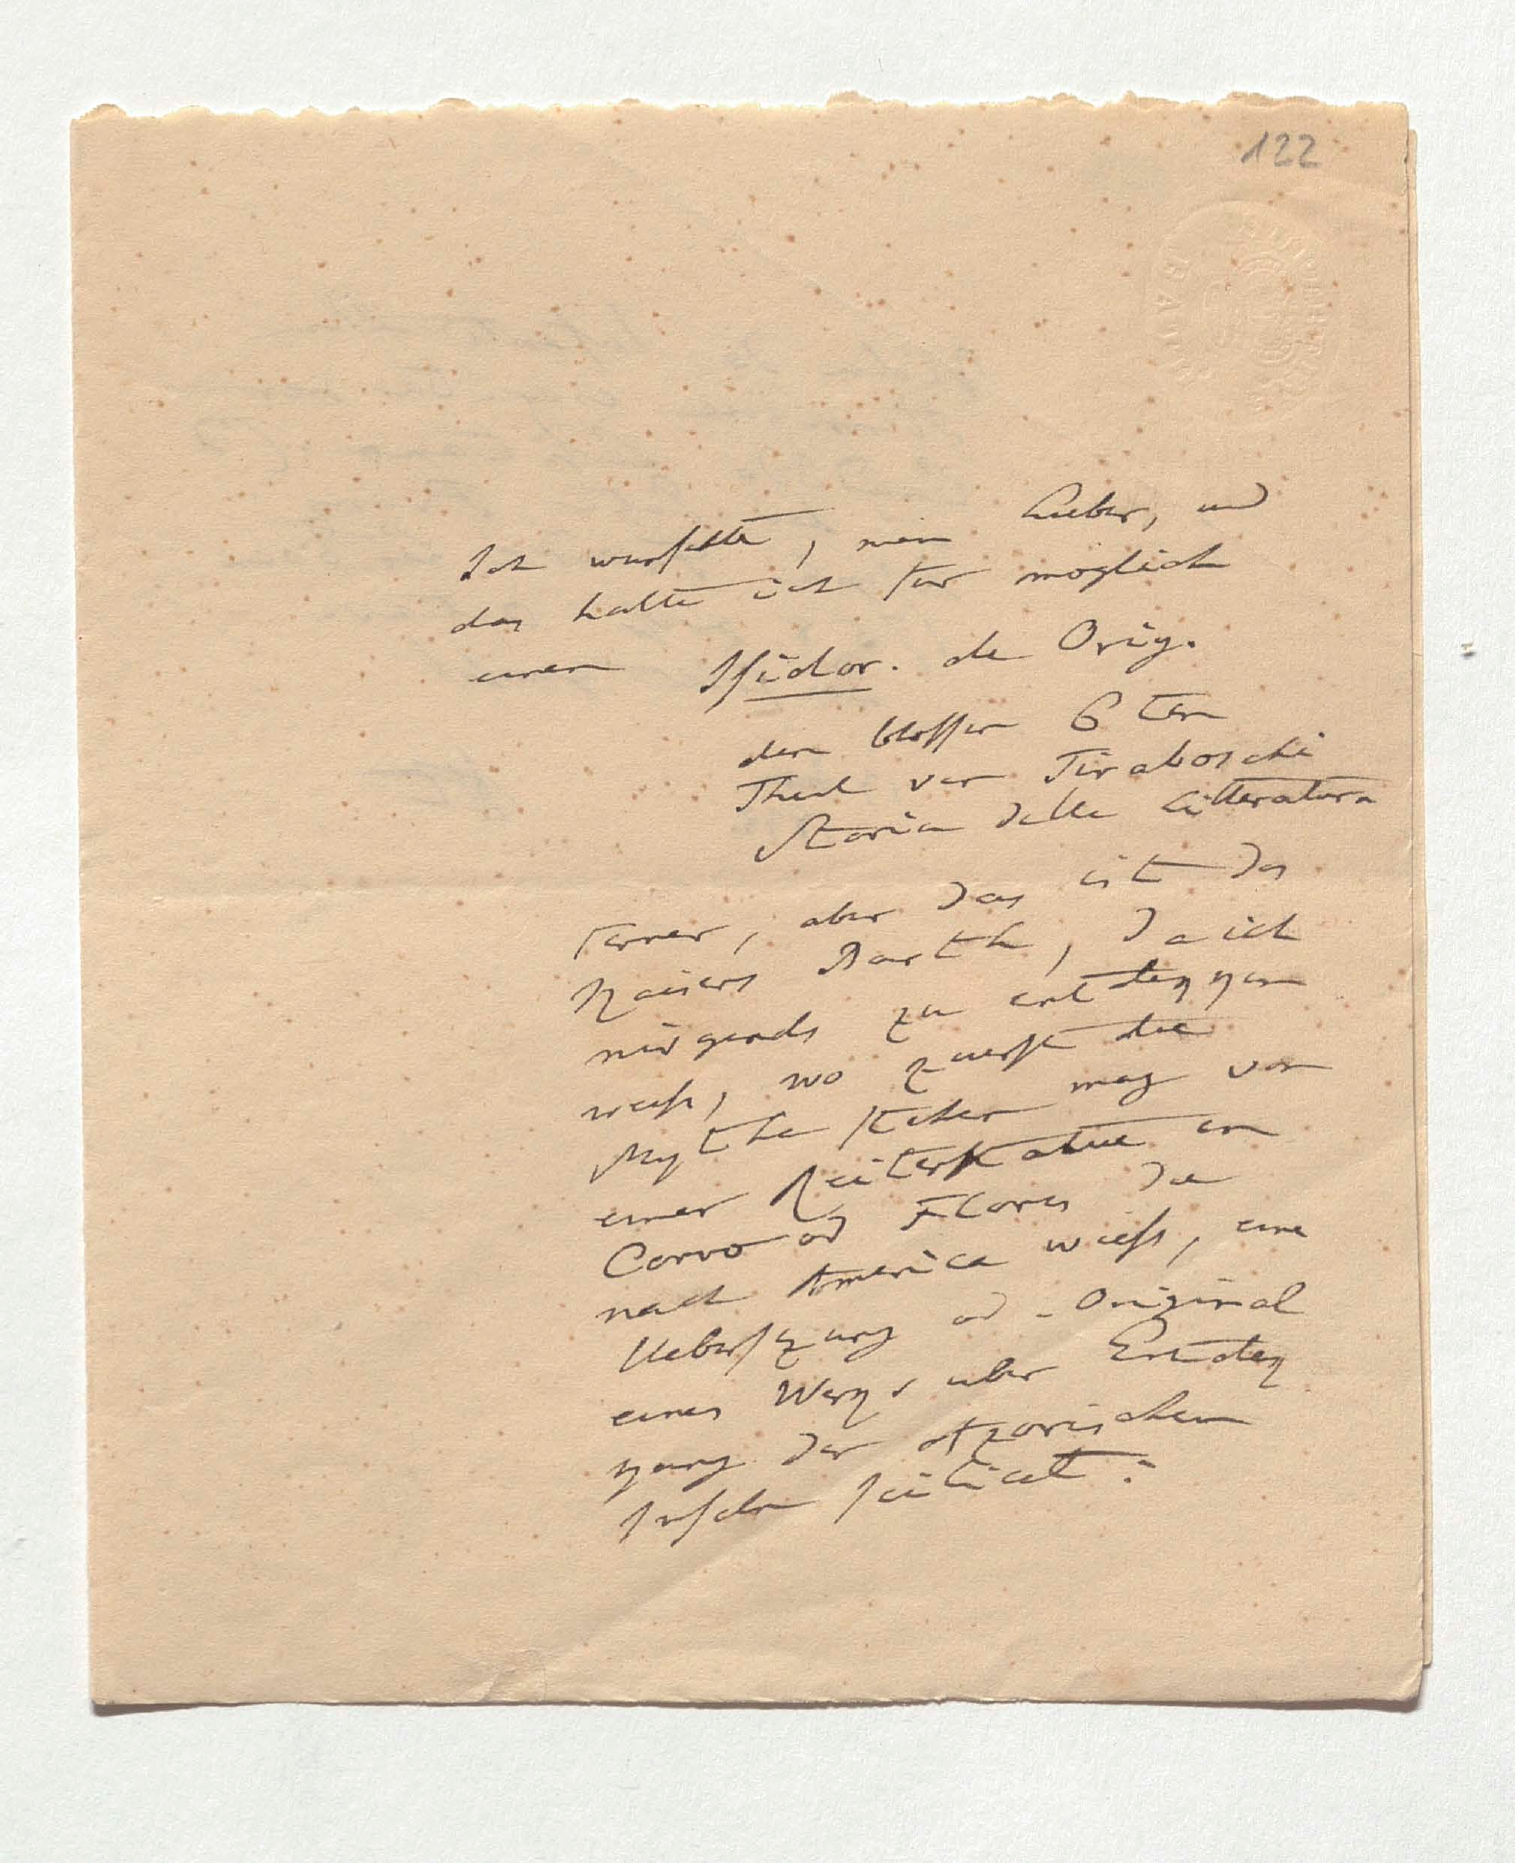 122
BATH
Ich wünschte, mein Lieber, und
das halte ich für möglich
einen Isidor. de Orig.
den blossen 6ten
Theil von Tiraboschi
Storia della Litteratura
ferner, aber das ist des
Kaisers Barth, da ich
nirgends zu entdekken
weiß, wo zuerst die
Mythe stehen mag von
einer Reiterstatue in
Corvo od Flores die
nach America wieß, eine
Uebersezung od. Original
eines Werks über Entdek
kung der Azorischen
Inseln scilicet: